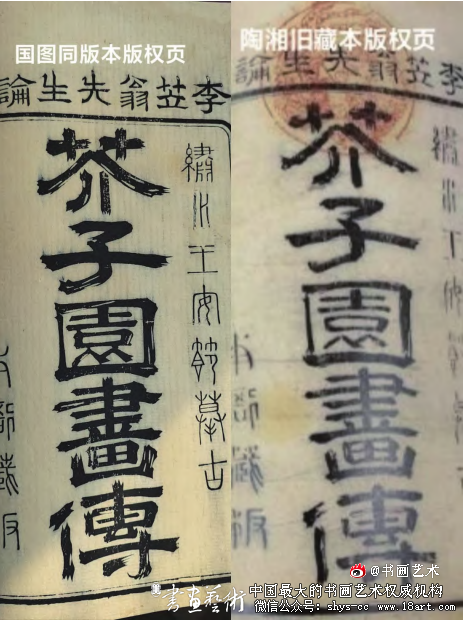 国图同版本版权页
李笠翁先生論
繡水王安節摹古
芥子園畫傳
本衙藏板
陶湘旧藏本版权页
李笠翁先生論
繡水王
芥子園畫傳
本衙藏板
@书画艺术
書畫藝術
中国最大的书画艺术权威机构
微信公众号：shys-cc www.18art.com